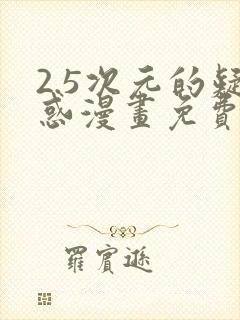 2.5次元的疑
惑漫畫免費
羅賓遜